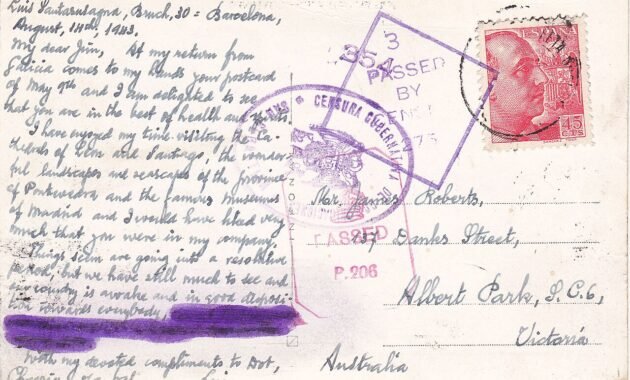 Luis Santasusagna, Bruch, 30 = Barcelona,
August, 14th, 1943.
My dear Jim, At my return from
Galicia comes to my hands your postcard
of May 9th and I am delighted to see
that you are in the best of health and
I have enjoyed my trip visiting the Ca-
thedrals of León and Santiago, the wonder-
ful landscapes and seascapes of the province
of Pontevedra and the famous Museums
of Madrid and I would have liked very
much that you were in my company.
Things seem are going into a resolutive
period, but we have still much to see and
our country is awake and in good disposi-
tion towards everybody,
With my devoted compliments to Dot,
3
354
PASSED
BY
CENSURA GUBERNATIVA
PASSED
P.206
45
CTS
Mr. James Roberts,
137 Danks Street,
Albert Park, S.C.6,
Victoria
Australia